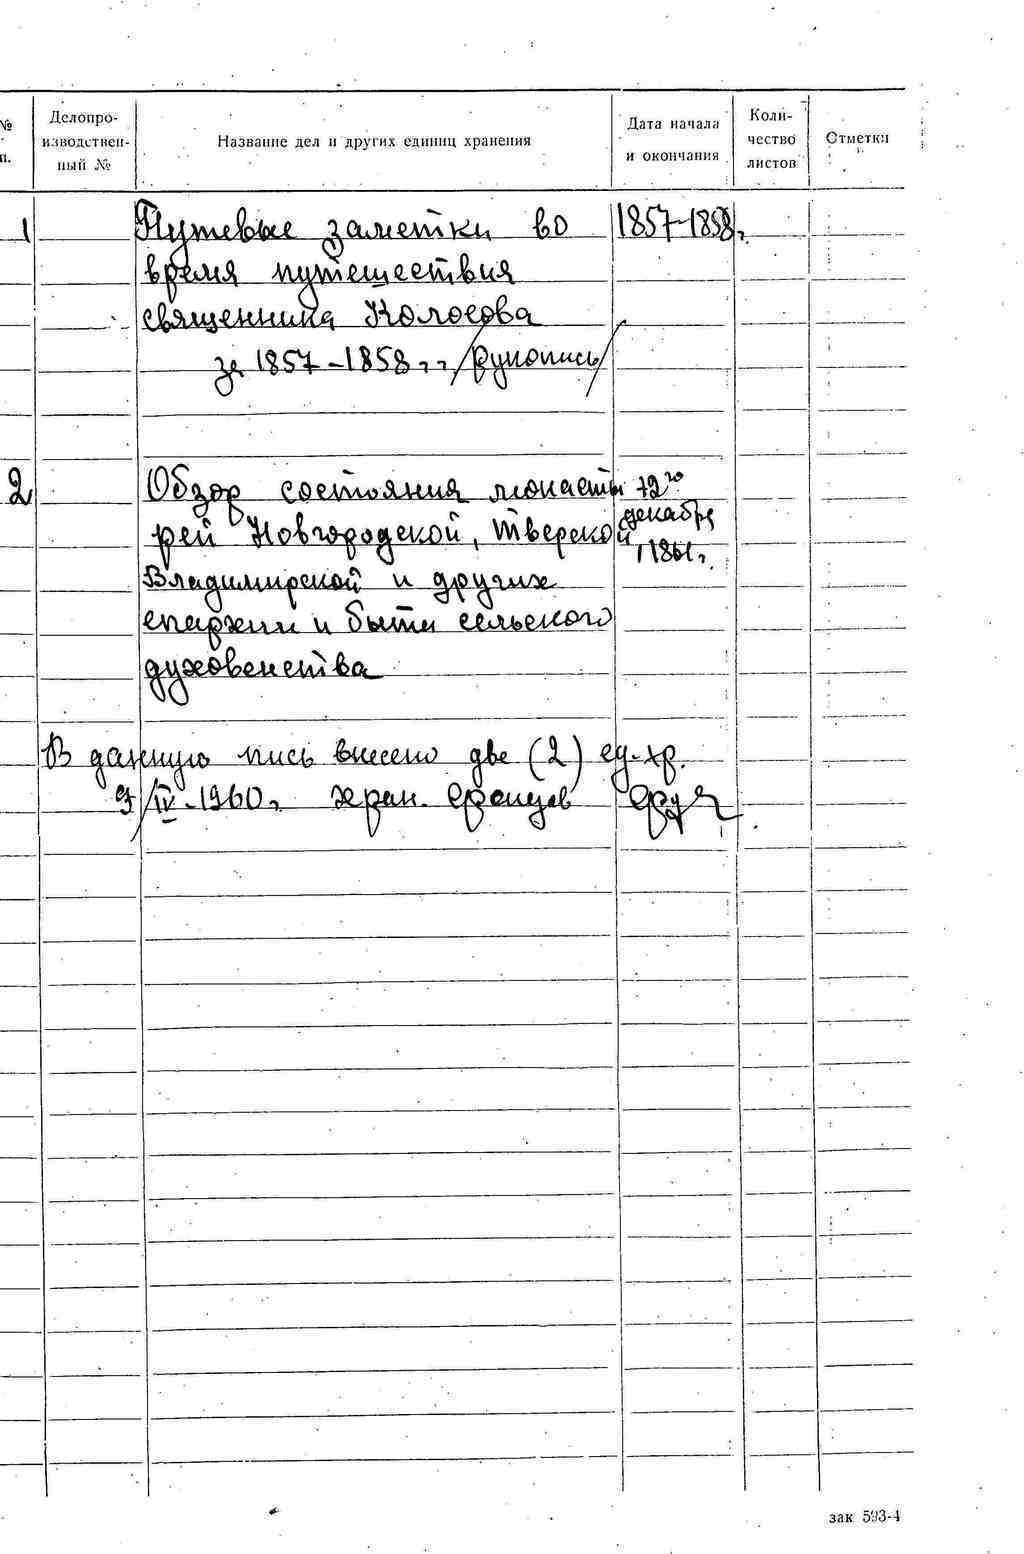 №
п.
Делопро-
изводствен-
ный №
Название дел и других единиц хранения
Дата начала
и окончания
Коли-
чество
листов
Отметки
1 Путевые заметки во 1857-1858г.
время путешествия
священника Колосова
за 1857-1858 г.г. /рукопись/
2 Обзор состояния монасты 12го
рей Новгородской, Тверской декабря
Владимирской и других 1861г.
епархии и быта сельского
духовенства
В данную пись внесено две (2) ед. хр.
9/IV-1960г. хран.
зак 593-4